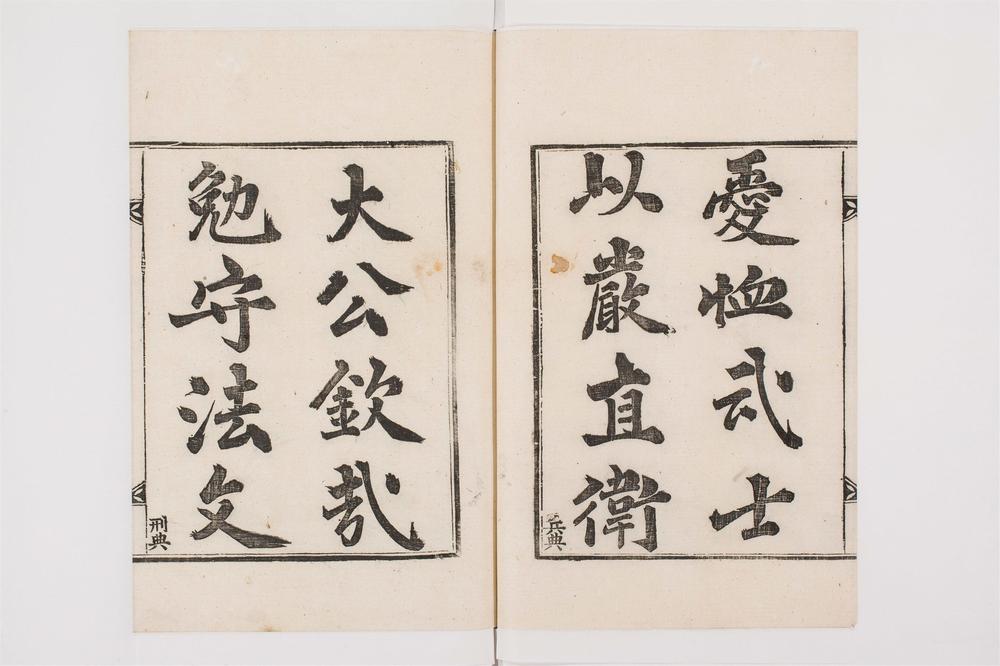 愛恤武士
以嚴直衛
兵典
大公欽哉
勉守法文
刑典